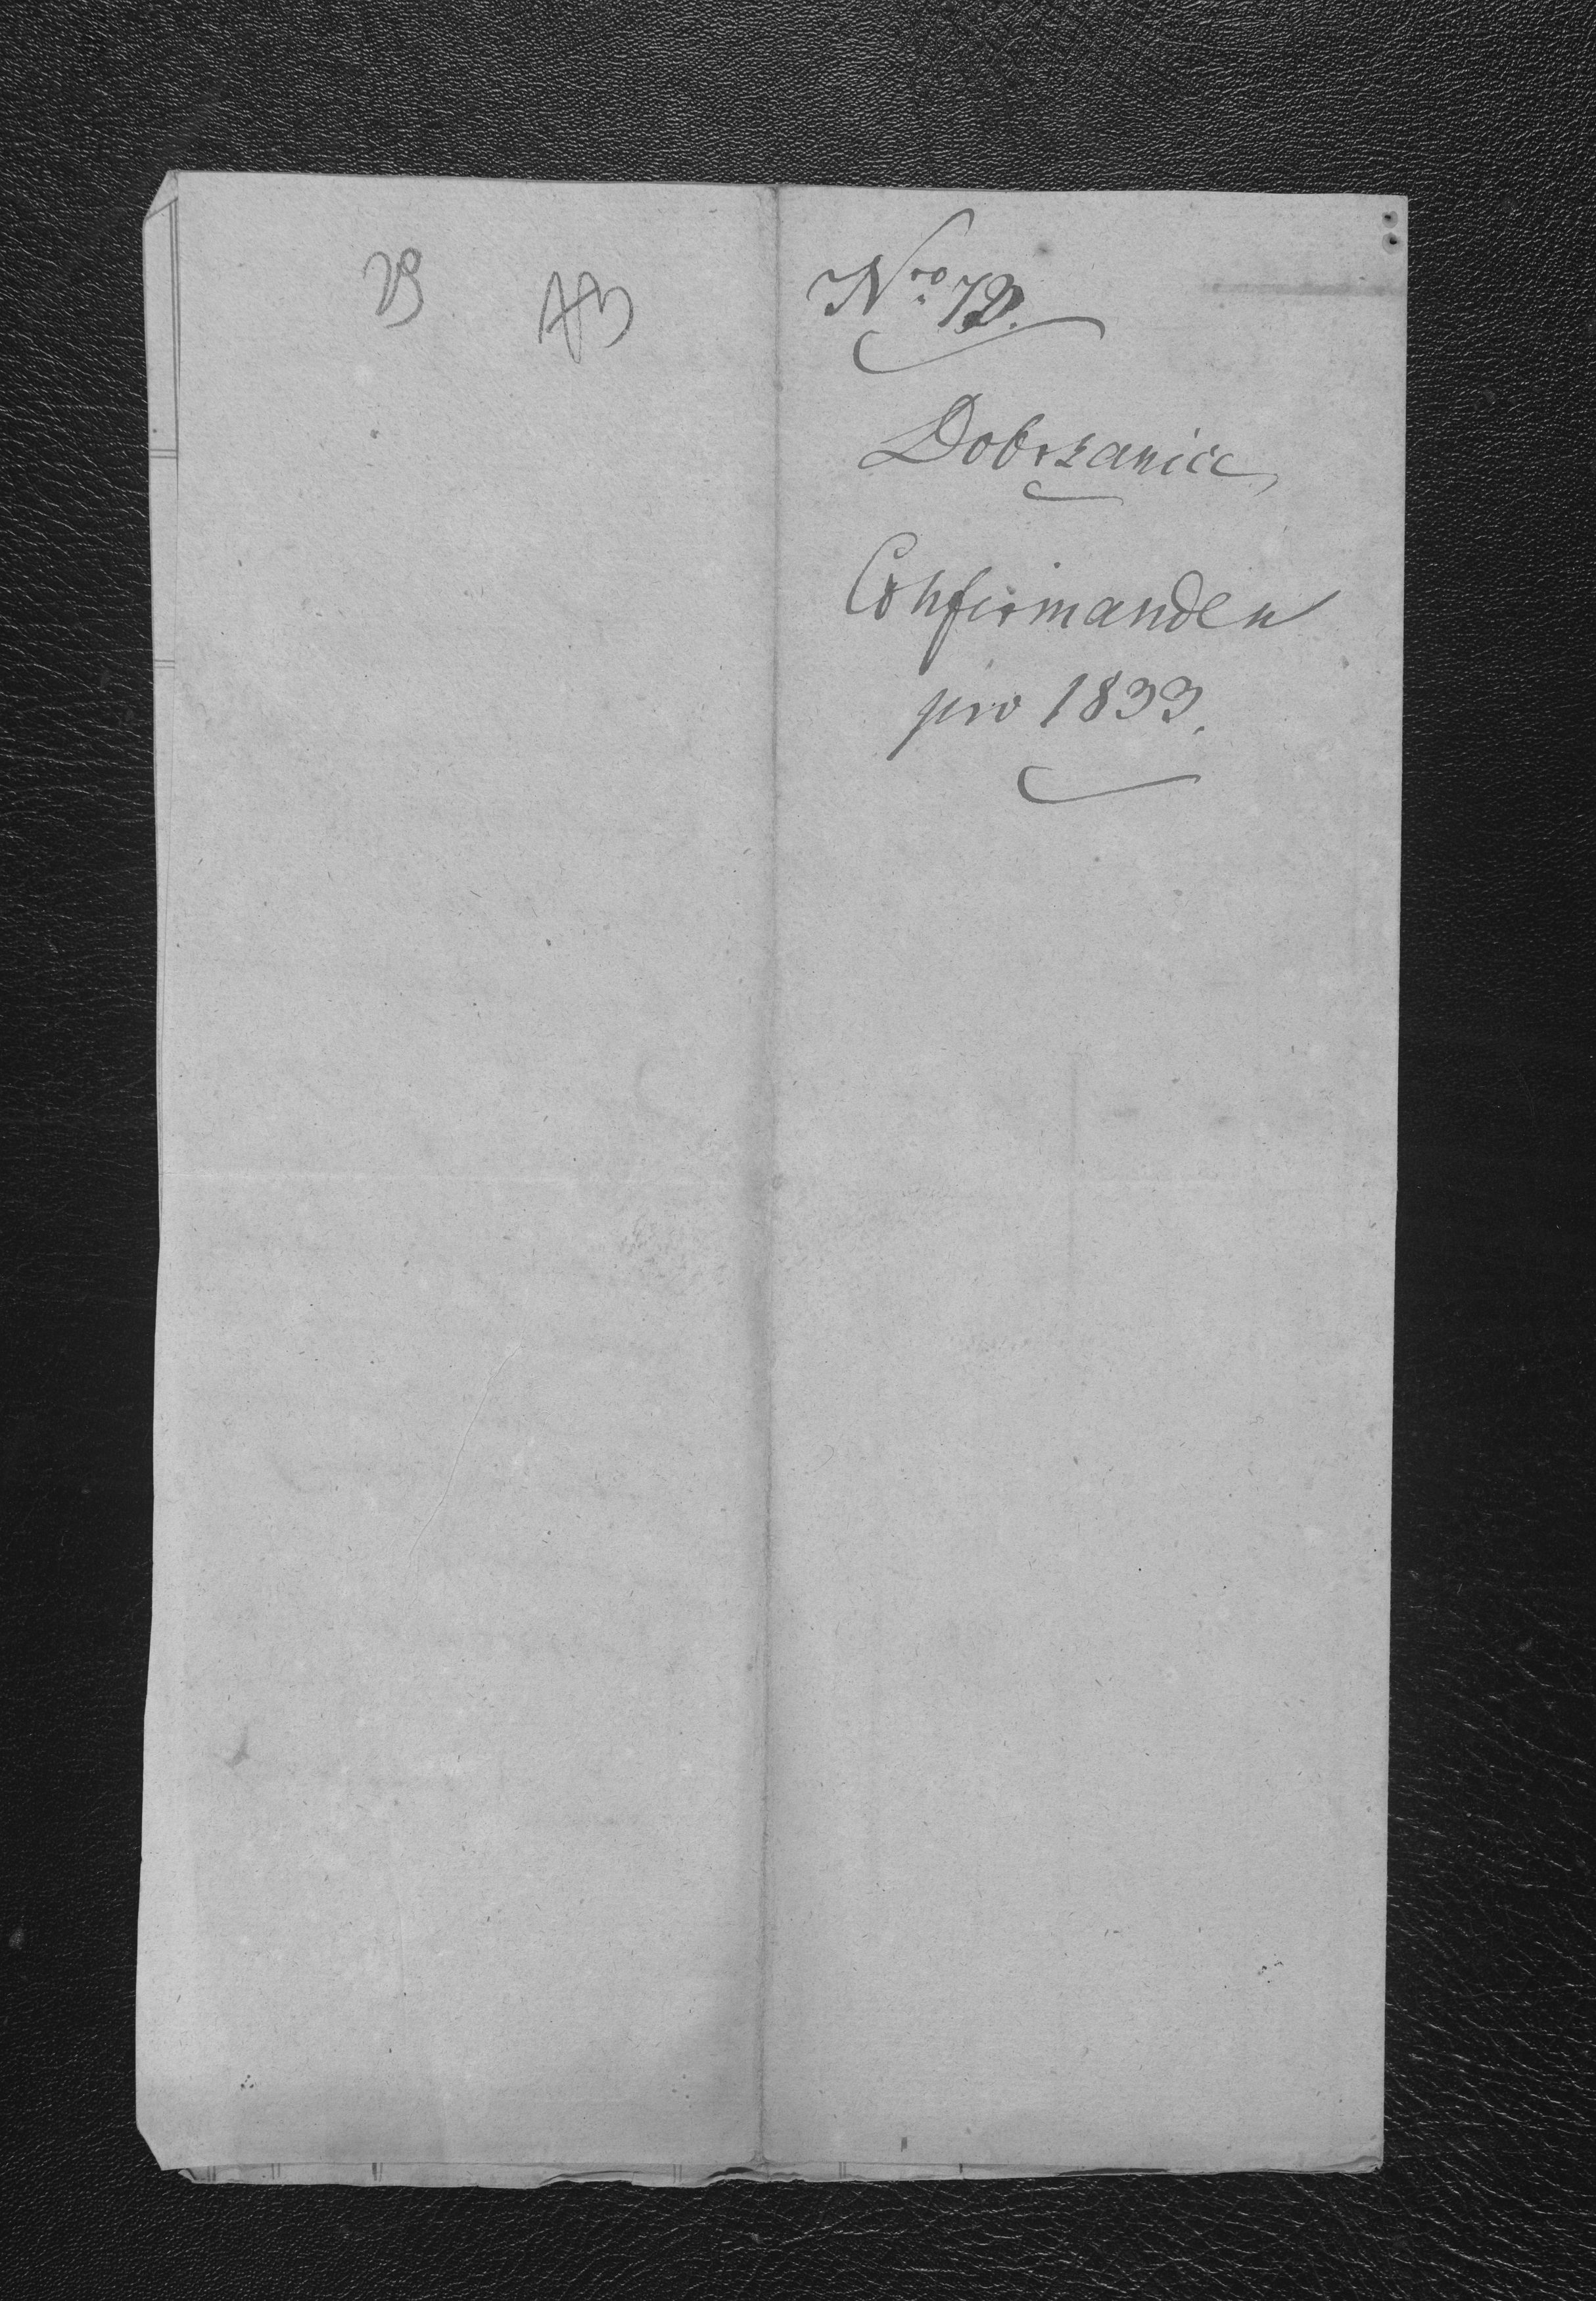 Nro 12.
Dobrzanice
Confirmanden
pro 1833.